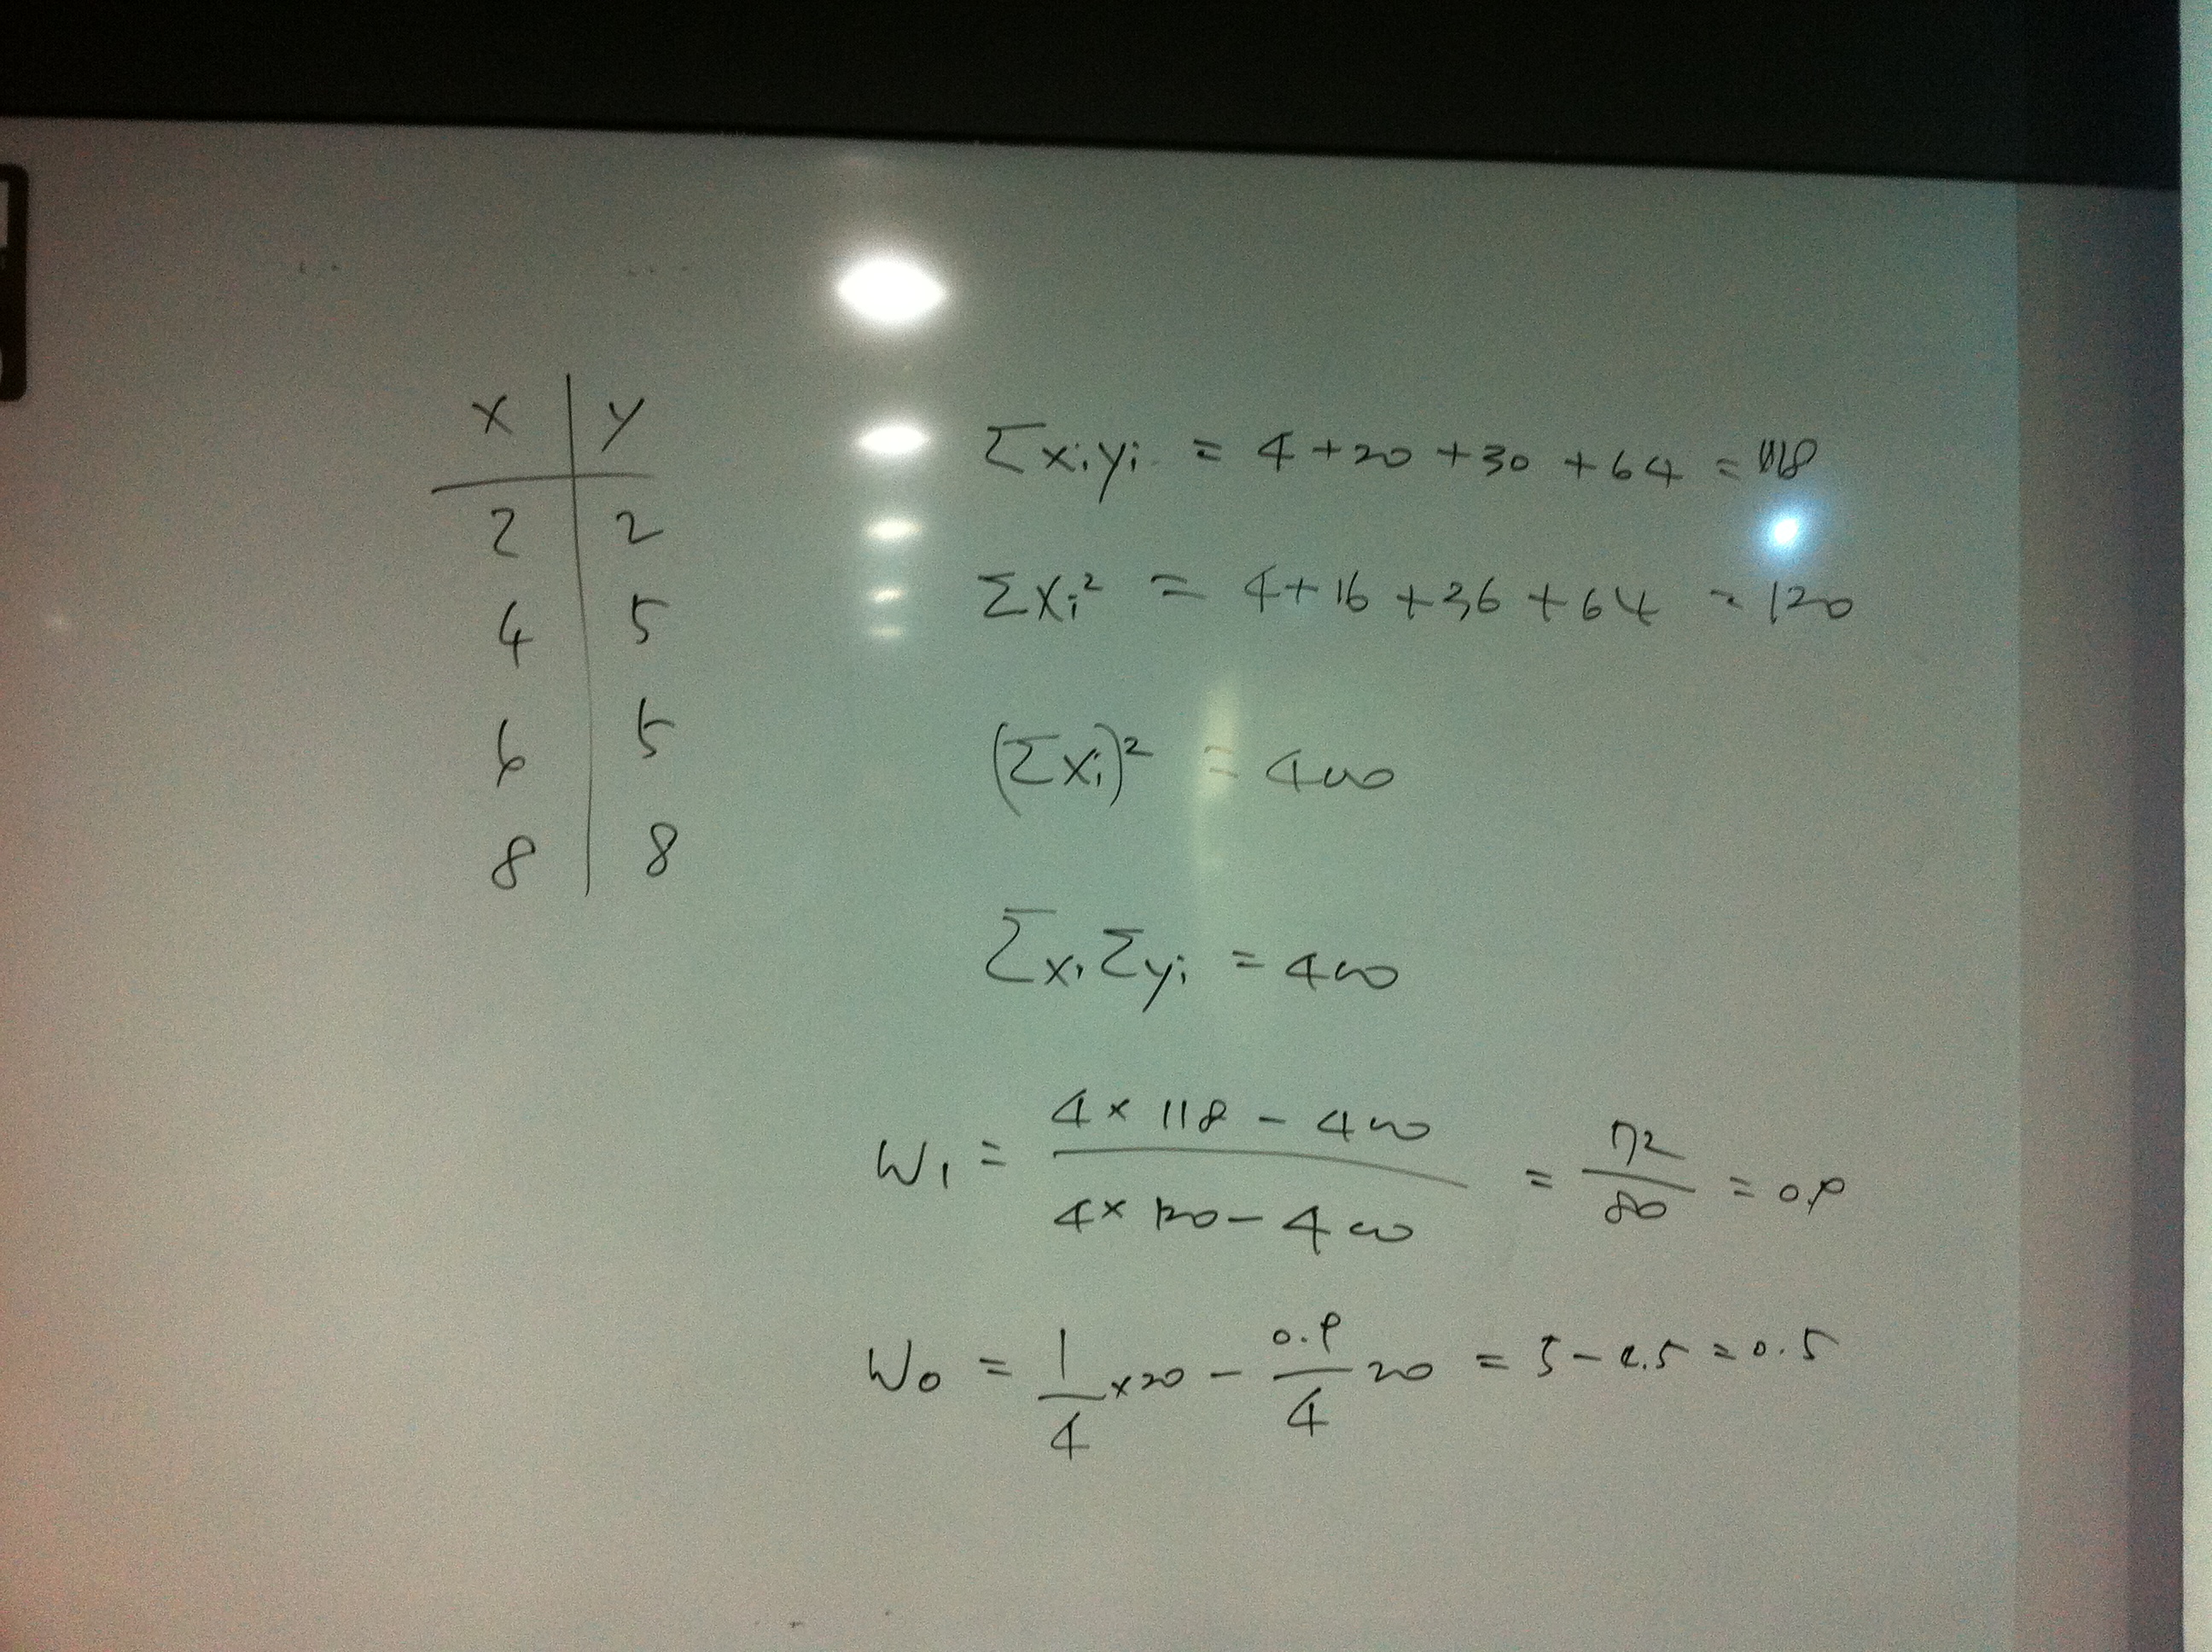 x y
2 2
4 5
6 5
8 8
Σxiyi = 4+20+30+64 = 118
Σxi² = 4+16+36+64 = 120
(Σxi)² = 400
ΣxiΣyi = 400
W1 = (4×118-400)/(4×120-400) = 72/80 = 0.9
W0 = 1/4×20 - 0.9/4 20 = 5-4.5 = 0.5